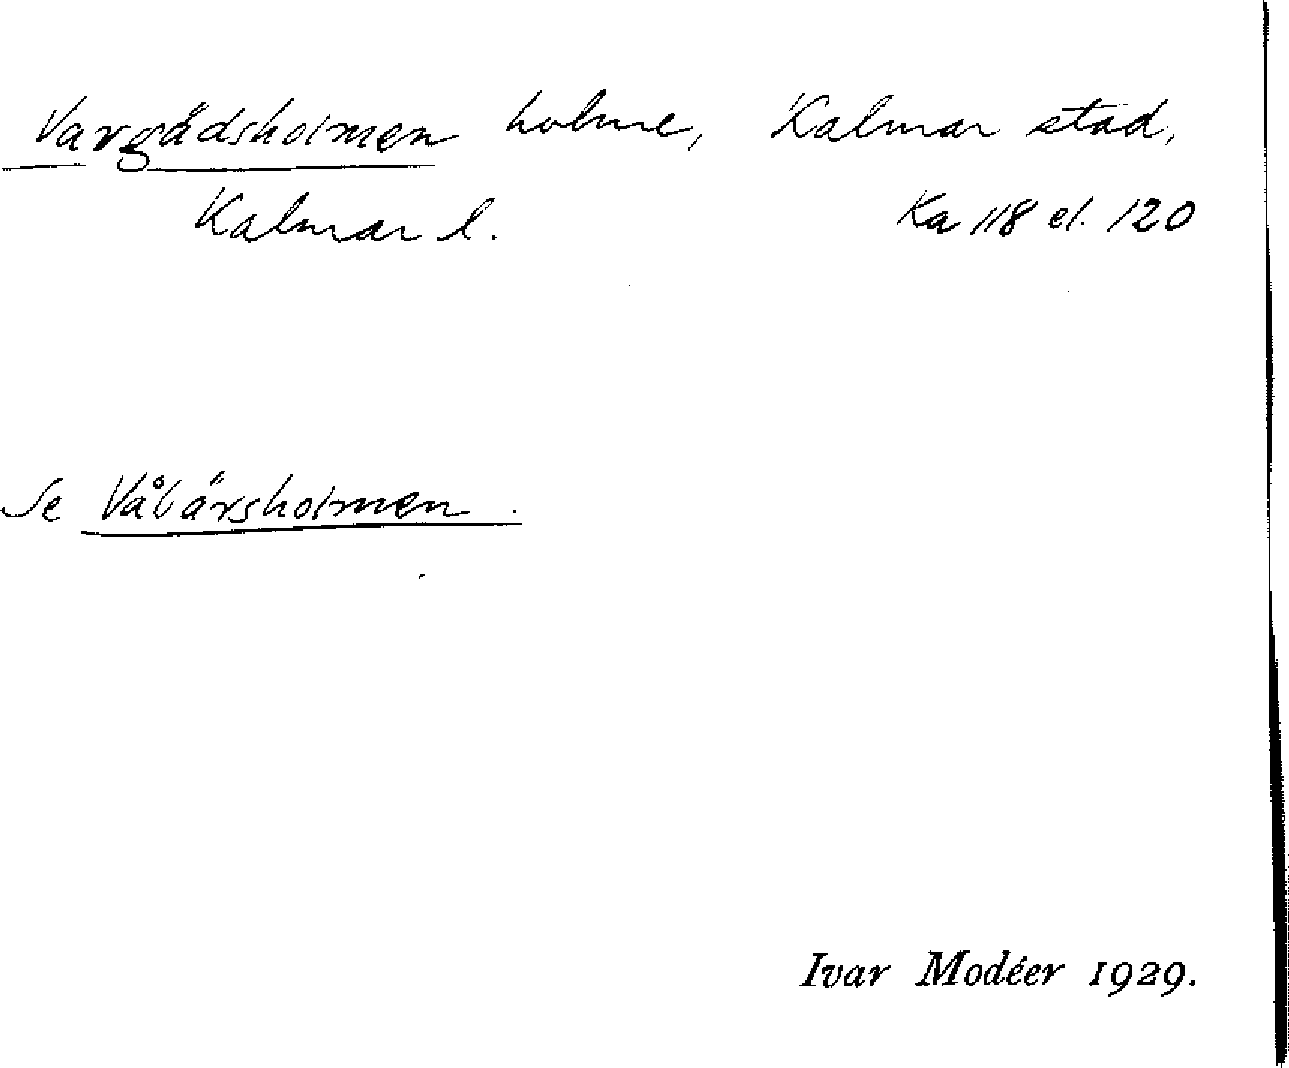 Vargädsholmen holme, Kalmar stad,
Kalmar l. Ka 118 el. 120
Se Våbärsholmen.
Ivar Modéer 1929.